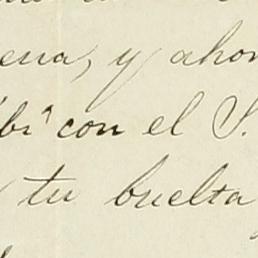 ena, y ahor
bi" con el S.
tu buelta